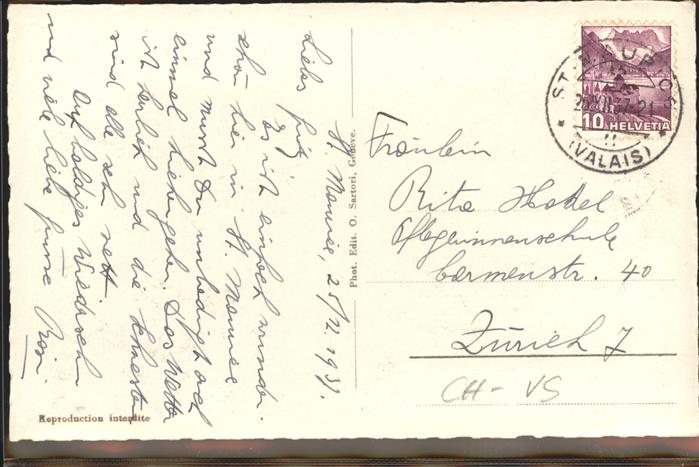 St. Maurice, 25/VI. 1937.
Liebs
Es ist einfach wunder-
schön hier in St. Maurice
und musst Du unbedingt auch
einmal hiehergehen. Das Wetter
ist herrlich und die
sind alle sehr nett.
Auf baldiges Wiedersehn
und viele liebe Grüsse Rosi.
Reproduction interdite
Phot. Edit. O. Sartori, Genève.
10 HELVETIA
ST. MAURICE
(VALAIS)
Fräulein
Rita Hodel
Pflegerinnenschule
Carmenstr. 40
Zürich 7
CH- VS